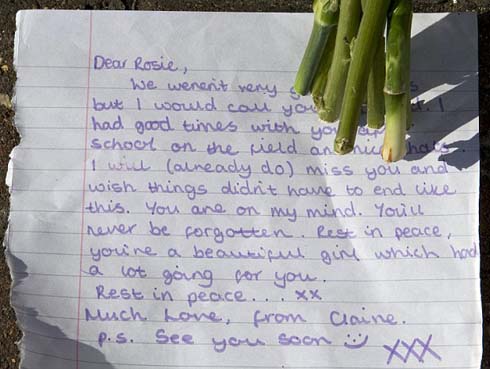 Dear Rosie,
We weren't very
but I would call you
had good times with you
school on the field and
I will (already do) miss you and
wish things didn't have to end like
this. You are on my mind. You'll
never be forgotten. Rest in peace,
you're a beautiful girl which had
a lot going for you.
Rest in peace... xx
Much Love, from Claire.
p.s. See you soon :) xxx